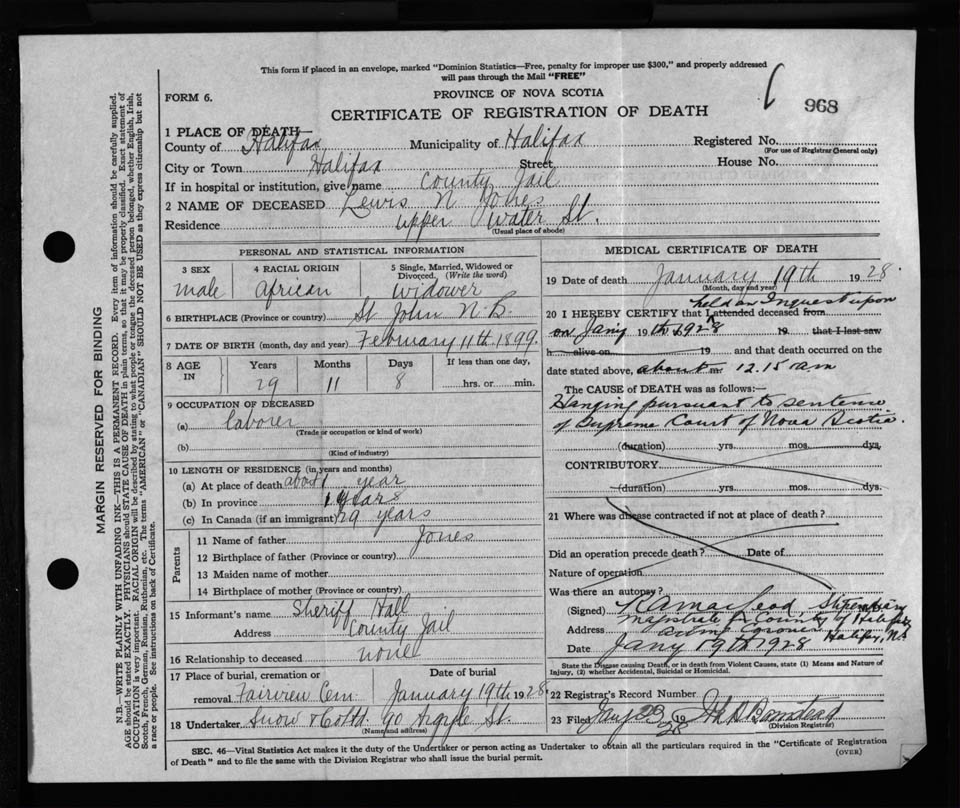 This form if placed in an envelope, marked "Dominion Statistics—Free, penalty for improper use $300," and properly addressed
will pass through the Mail "FREE"
FORM 6.
PROVINCE OF NOVA SCOTIA
968
CERTIFICATE OF REGISTRATION OF DEATH
1 PLACE OF DEATH—
County of Halifax Municipality of Halifax Registered No.
(For use of Registrar General only)
City or Town Halifax Street House No.
If in hospital or institution, give name County Jail
2 NAME OF DECEASED Lewis N Jones
Residence upper Water St.
(Usual place of abode)
MARGIN RESERVED FOR BINDING
N.B.—WRITE PLAINLY WITH UNFADING INK—THIS IS A PERMANENT RECORD. Every item of information should be carefully supplied.
AGE should be stated EXACTLY. PHYSICIANS should STATE CAUSE OF DEATH in plain terms, so that it may be properly classified. Exact statement of
OCCUPATION is very important. RACIAL ORIGIN will be described by stating to what people or tongue the deceased person belonged, whether English, Irish,
Scotch, French, German, Russian, Ruthenian, etc. The terms "AMERICAN" or "CANADIAN" SHOULD NOT BE USED as they express citizenship but not
a race or people. See instructions on back of Certificate.
PERSONAL AND STATISTICAL INFORMATION
3 SEX 4 RACIAL ORIGIN 5 Single, Married, Widowed or
Divorced. (Write the word)
male African Widower
6 BIRTHPLACE (Province or country) St John N.B.
7 DATE OF BIRTH (month, day and year) February 11th. 1899.
8 AGE IN Years Months Days If less than one day,
29 11 8 hrs. or min.
9 OCCUPATION OF DECEASED
(a) laborer
(Trade or occupation or kind of work)
(b)
(Kind of industry)
10 LENGTH OF RESIDENCE (in years and months)
(a) At place of death about 1 year
(b) In province 1 years
(c) In Canada (if an immigrant) 29 years
Parents
11 Name of father Jones
12 Birthplace of father (Province or country)
13 Maiden name of mother
14 Birthplace of mother (Province or country)
15 Informant's name Sheriff Hall
Address County Jail
16 Relationship to deceased none
17 Place of burial, cremation or Date of burial
removal Fairview Cem. January 19th 1928
18 Undertaker Snow & Co Ltd. 90 Argyle St.
(Name and address)
MEDICAL CERTIFICATE OF DEATH
19 Date of death January 19th 1928.
(Month, day and year)
held an Inquest upon
20 I HEREBY CERTIFY that I attended deceased from
on Jany 19th 1928 19 that I last saw
h alive on 19 and that death occurred on the
date stated above, about m 12.15 am
The CAUSE of DEATH was as follows:—
Hanging pursuant to sentence
of Supreme Court of Nova Scotia.
(duration) yrs. mos. dys.
CONTRIBUTORY
(duration) yrs. mos. dys.
21 Where was disease contracted if not at place of death?
Did an operation precede death? Date of
Nature of operation
Was there an autopsy?
(Signed) MacLeod, Stipendiary
magistrate for County of Halifax
Address Coroner Halifax, NS
Date Jany 19th 1928
State the Disease causing Death, or in death from Violent Causes, state (1) Means and Nature of
Injury, (2) whether Accidental, Suicidal or Homicidal.
22 Registrar's Record Number
23 Filed Jany 23 19 28
(Division Registrar)
SEC. 46—Vital Statistics Act makes it the duty of the Undertaker or person acting as Undertaker to obtain all the particulars required in the "Certificate of Registration
of Death" and to file the same with the Division Registrar who shall issue the burial permit.
(OVER)